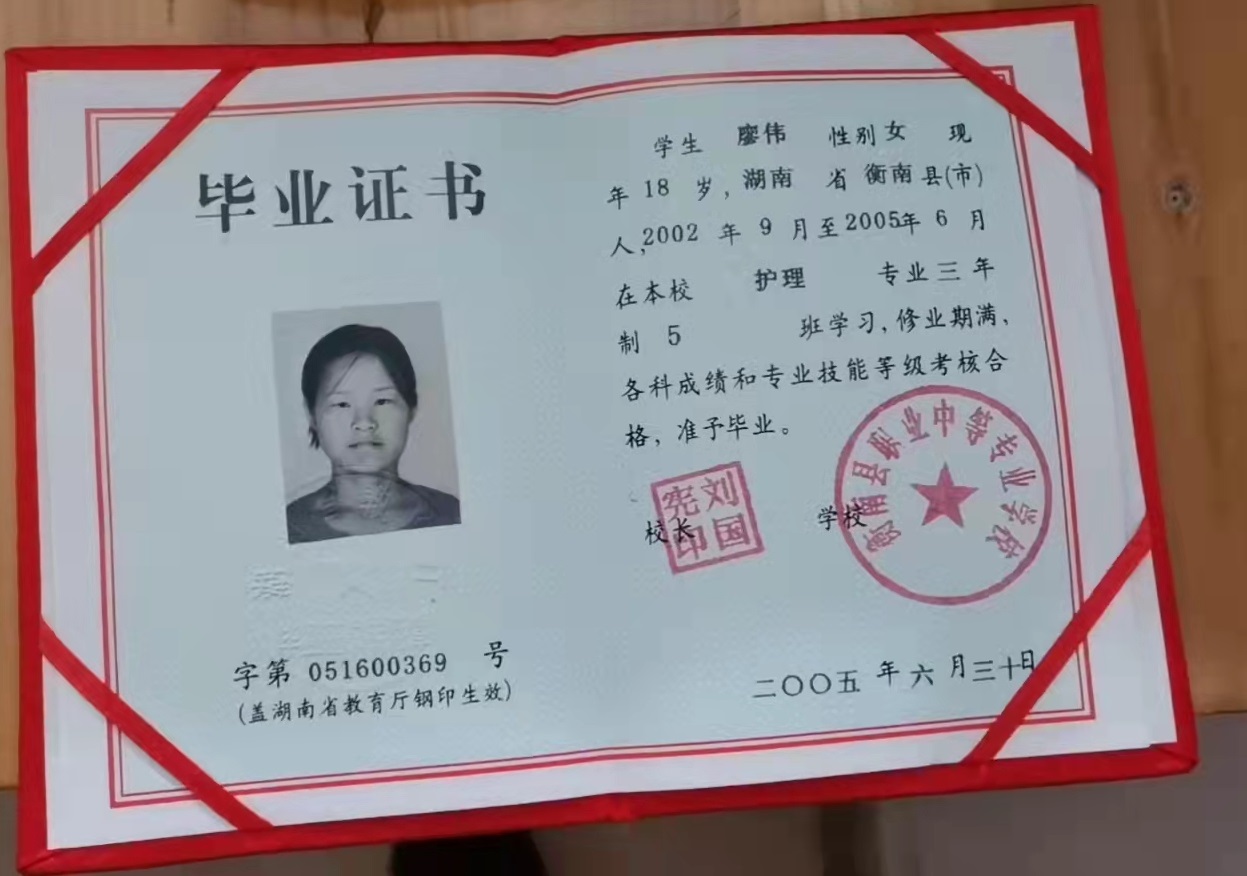 毕业证书
字第 051600369 号
(盖湖南省教育厅钢印生效)
学生 廖伟 性别 女 现
年 18 岁，湖南 省 衡南 县(市)
人，2002 年 9 月至 2005年 6 月
在本校 护理 专业三年
制 5 班学习，修业期满、
各科成绩和专业技能等级考核合
格，准予毕业。
刘国宪印
校长
学校
衡南县职业中等专业学校
二〇〇五 年 六 月三十日